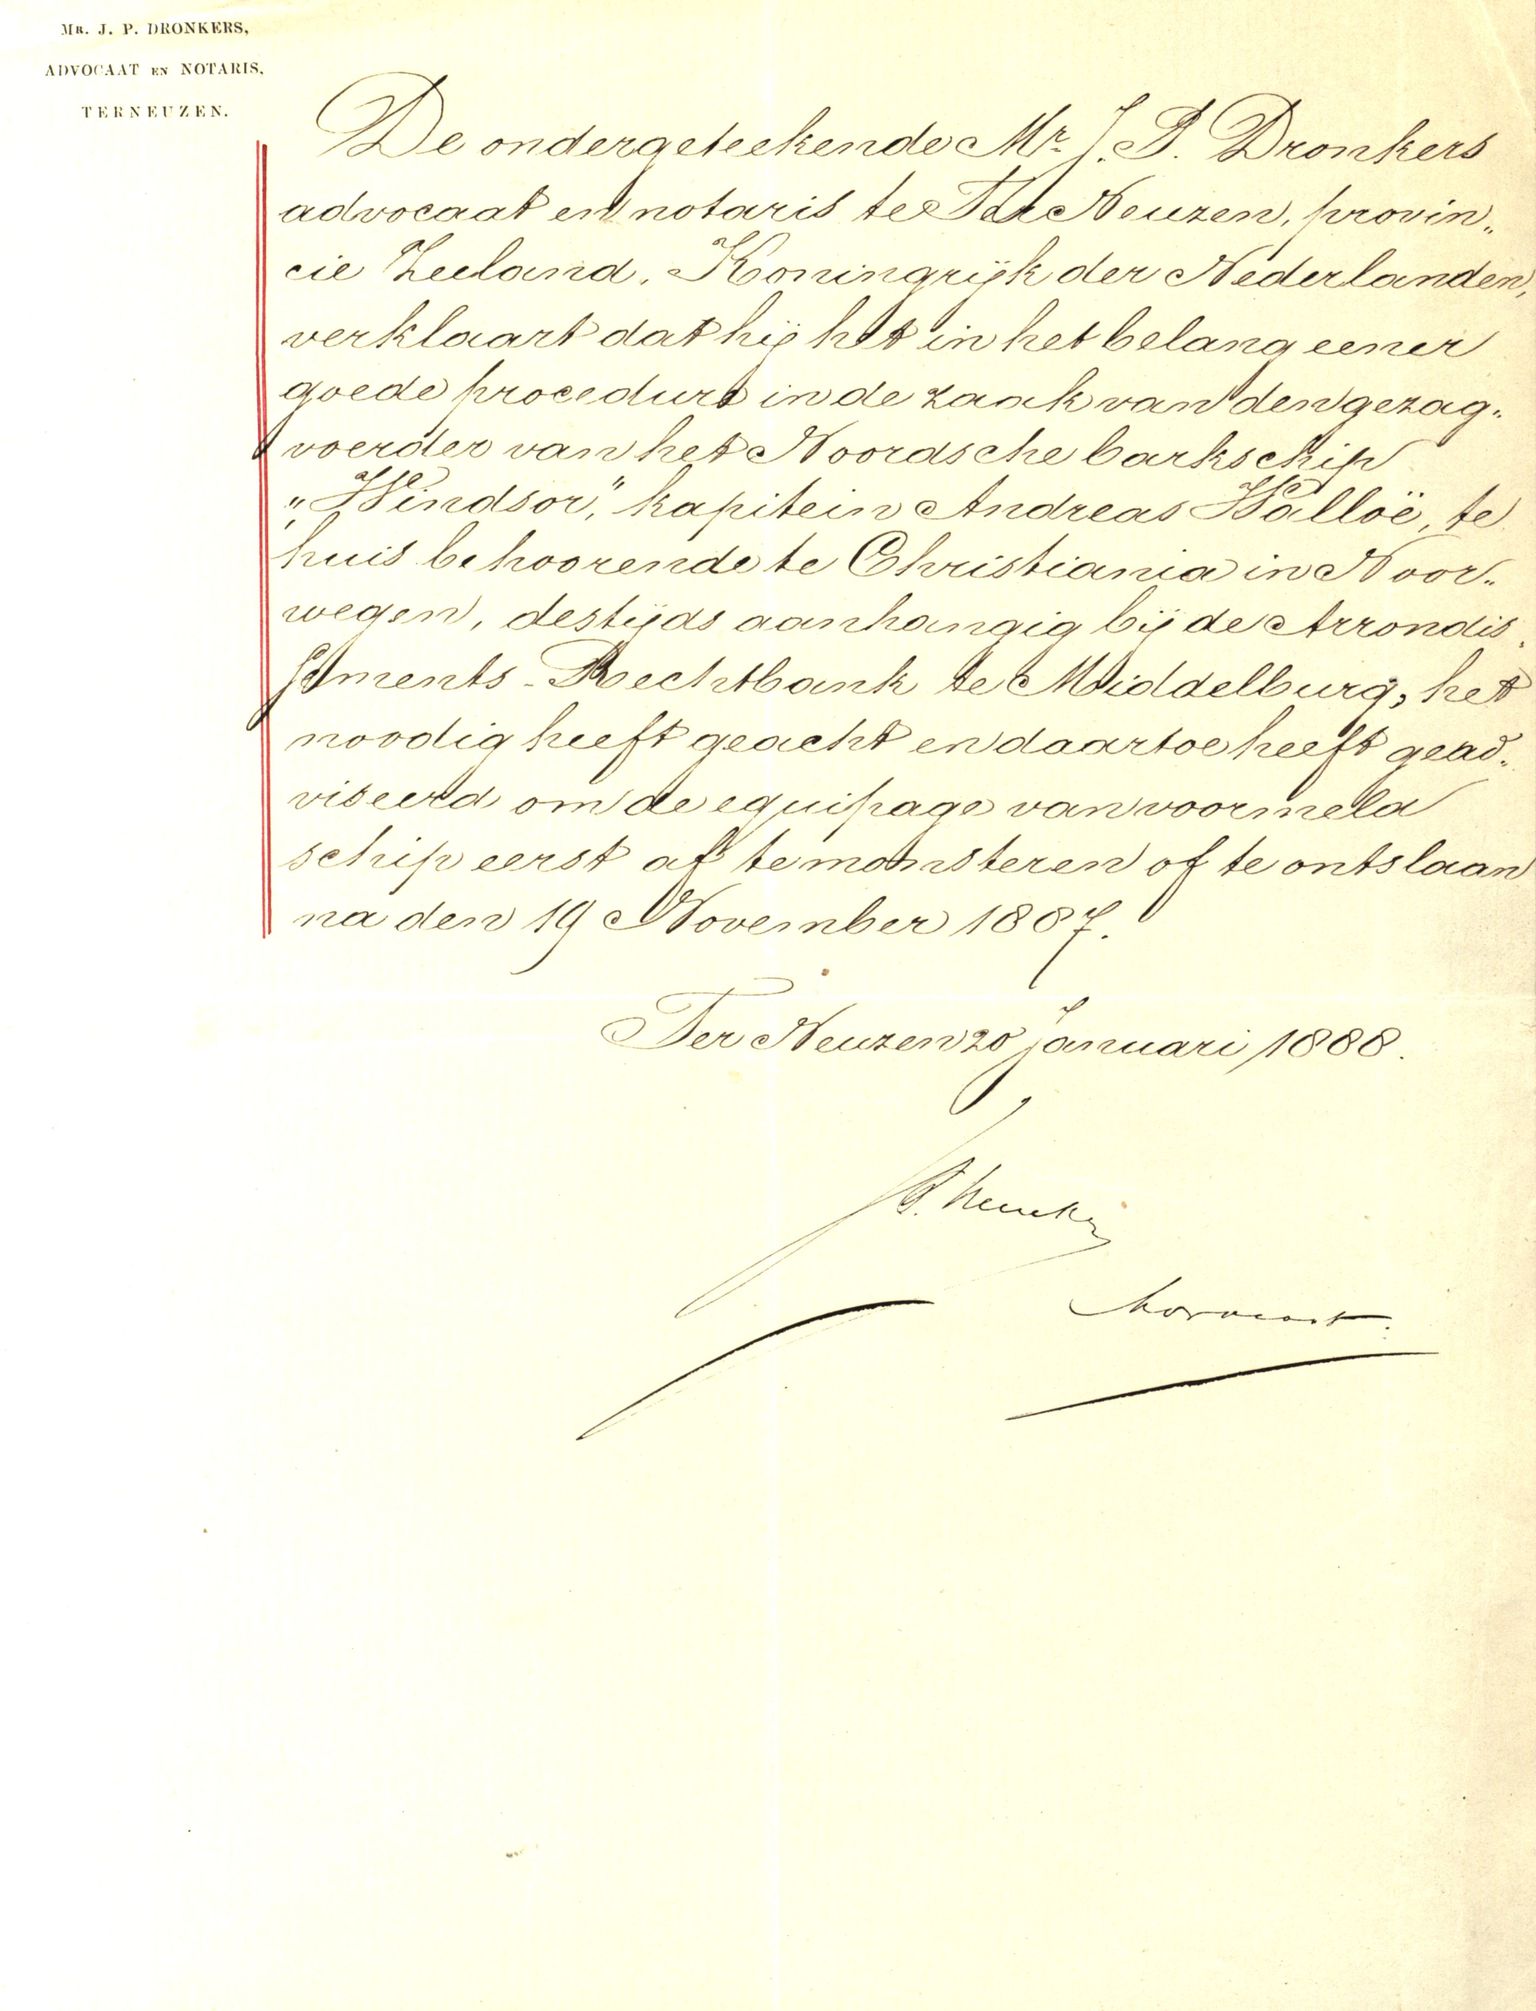 MR. J. P. DRONKERS,
ADVOCAAT EN NOTARIS,
TERNEUZEN.
De ondergeteekende Mr. J. P. Dronkers
advocaat en notaris te Ter Neuzen, provin„
cie Zeeland, Koningrijk der Nederlanden,
verklaart dat hij het in het belang eener
goede procedure in de zaak van den gezag„
voerder van het Noordsche barkschip
„Windsor," kapitein Andreas Walloë, te
huis behoorende te Christiania in Noor„
wegen, destijds aanhangig bij de Arrondis„
sements-Rechtbank te Middelburg, het
noodig heeft geacht en daartoe heeft gead„
viseerd om de equipage van voormeld
schip eerst af te monsteren of te ontslaan
na den 19 November 1887.
Ter Neuzen 20 Januari 1888.
Advocaat.